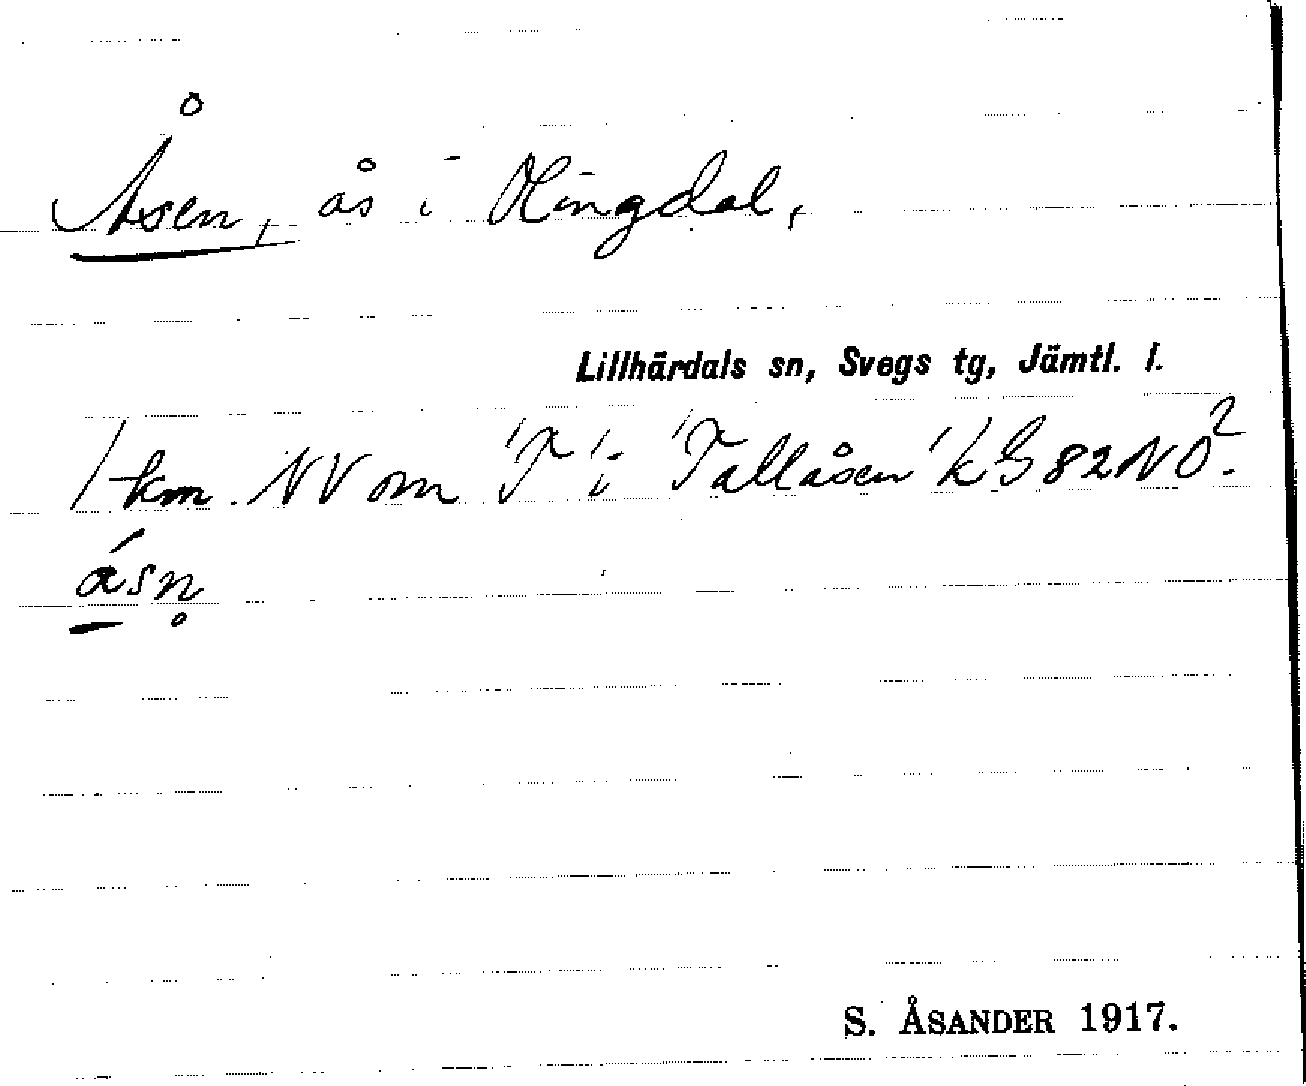 Åsen, ås i Olingdal,
Lillhärdals sn, Svegs tg, Jämtl. l.
1 km. NV om "T" i "Tallåsen" k G 82 NO².
ásn̥
S. ÅSANDER 1917.